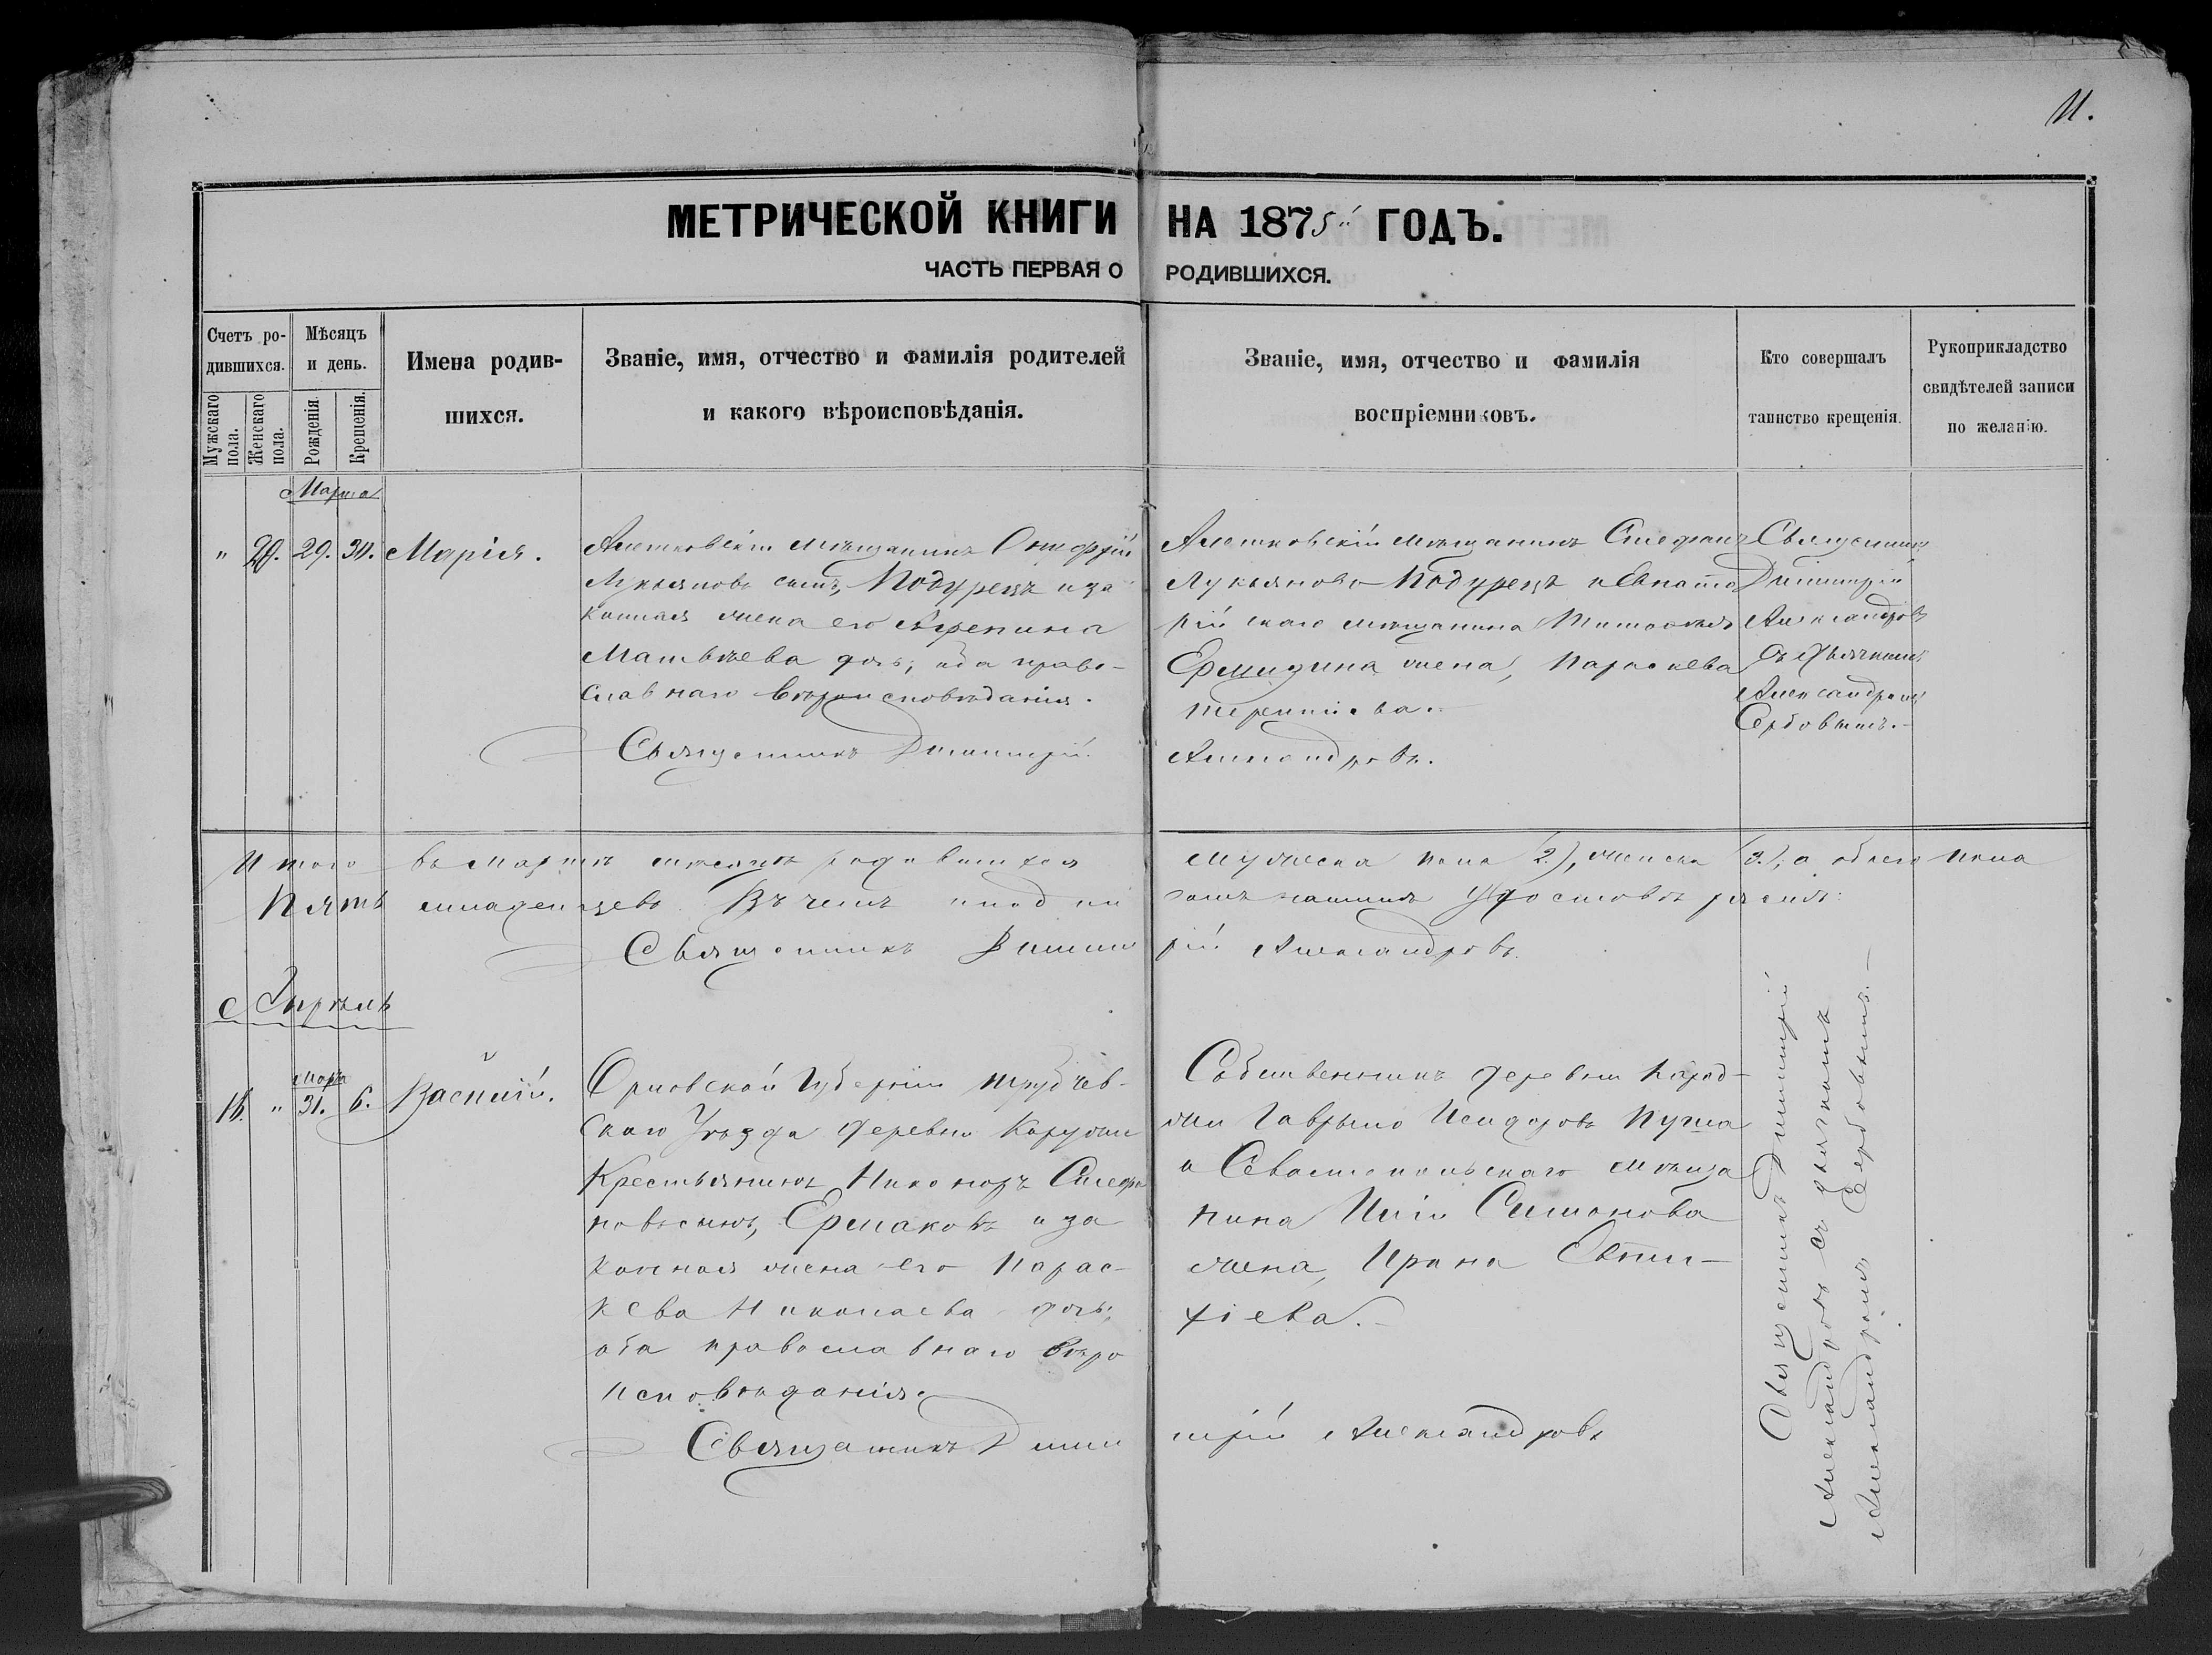 11.
МЕТРИЧЕСКОЙ КНИГИ НА 1875й ГОДЪ.
ЧАСТЬ ПЕРВАЯ О РОДИВШИХСЯ.
Счетъ родившихся.
Мужскаго пола.
Женскаго пола.
Мѣсяцъ и день.
Рожденія.
Крещенія.
Имена родив-
шихся.
Званіе, имя, отчество и фамилія родителей
и какого вѣроисповѣданія.
Званіе, имя, отчество и фамилія
воспріемниковъ.
Кто совершалъ
таинство крещенія.
Рукоприкладство
свидѣтелей записи
по желанію.
Марта
" 20. 29. 30. Марія.
Алешковскій мѣщанинъ Онуфрій
Лукьяновъ сынъ, Подурецъ и за
конная жена его Агрепина
Матвѣева дочь, оба право-
славнаго вѣроисповѣданія.
Священникъ Димитрій
Алешковскій мѣщанинъ Стефанъ
Лукьяновъ Подурецъ и Евпато
рійскаго мѣщанина
жена, Параскева
Терентіева.
Александровъ.
Священникъ
Димитрій
Александровъ
съ дьячкомъ
Александромъ
Сербовымъ.
Итого въ мартѣ мѣсяцѣ родившихся мужеска пола (2), женска (3), а обоего пола
Пять младенцевъ. Въ чемъ и подписомъ нашимъ удостовѣряемъ:
Священникъ Димитрій Александровъ.
Апрѣль
18. " Марта 31. 6. Василій.
Орловской Губерніи Трубчев-
скаго Уѣзда деревни
Крестьянинъ Никаноръ Стефа
новъ сынъ, Ермаковъ и за
конная жена его Парас-
кева Николаева дочь;
оба православнаго вѣро
исповѣданія.
Священникъ Дими
Собственникъ деревни
Гаврыло Исидоровъ
и Севастопольскаго мѣща
нина Симонова
жена, Ирина Евти-
хіева.
трій Александровъ
Священникъ Димитрій
Александровъ съ дьячкомъ
Александромъ Сербовымъ.